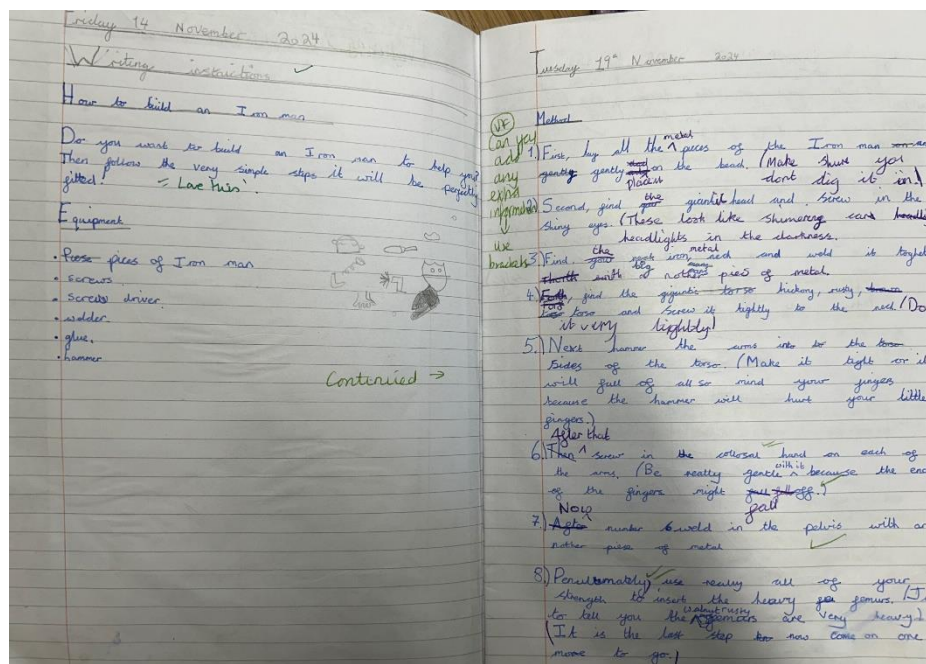 Friday 14 November 2024
Writing instructions
How to build an Iron man
Do you want to build an Iron man to help you?
Then follow the very simple steps it will be perfectly
fitted!
Love this
Equipment
pieces of Iron man
• screws
• screws driver
• welder
• glue.
• hammer
Continued →
Tuesday 19th November 2024
VF
Can you
add
any
extra
information
↓
use
brackets
Method
1.) First, lay all the metal pieces of the Iron man
gently on the bead. (Make shure you
place it
dont dig it in!)
2.) Second, find the giant head and screw in the
shiny eyes. (These look like shimering
headlights in the darkness.
3.) Find the iron, metal neck and weld it
with a nother piece of metal.
4. find the gigantic torso hickory, rusty,
torso and screw it tightly to the neck (Do
it very tightly!
5.) Next hammer the arms into to the torso
sides of the torso. (Make it tight or it
will fall of all so mind your fingers
because the hammer will hurt your little
fingers.)
After that
6.) Then screw in the colosal hand on each of
the arms. (Be really gentle with it because the end
of the fingers might fall off.)
fall
Now
7.) After number 6 weld in the pelvis with
nother piese of metal
8.) Penultamately, use really all of your
strength to insert the heavy femurs.
to tell you the are very heavy)
(It is the last step now come on one
more to go.)